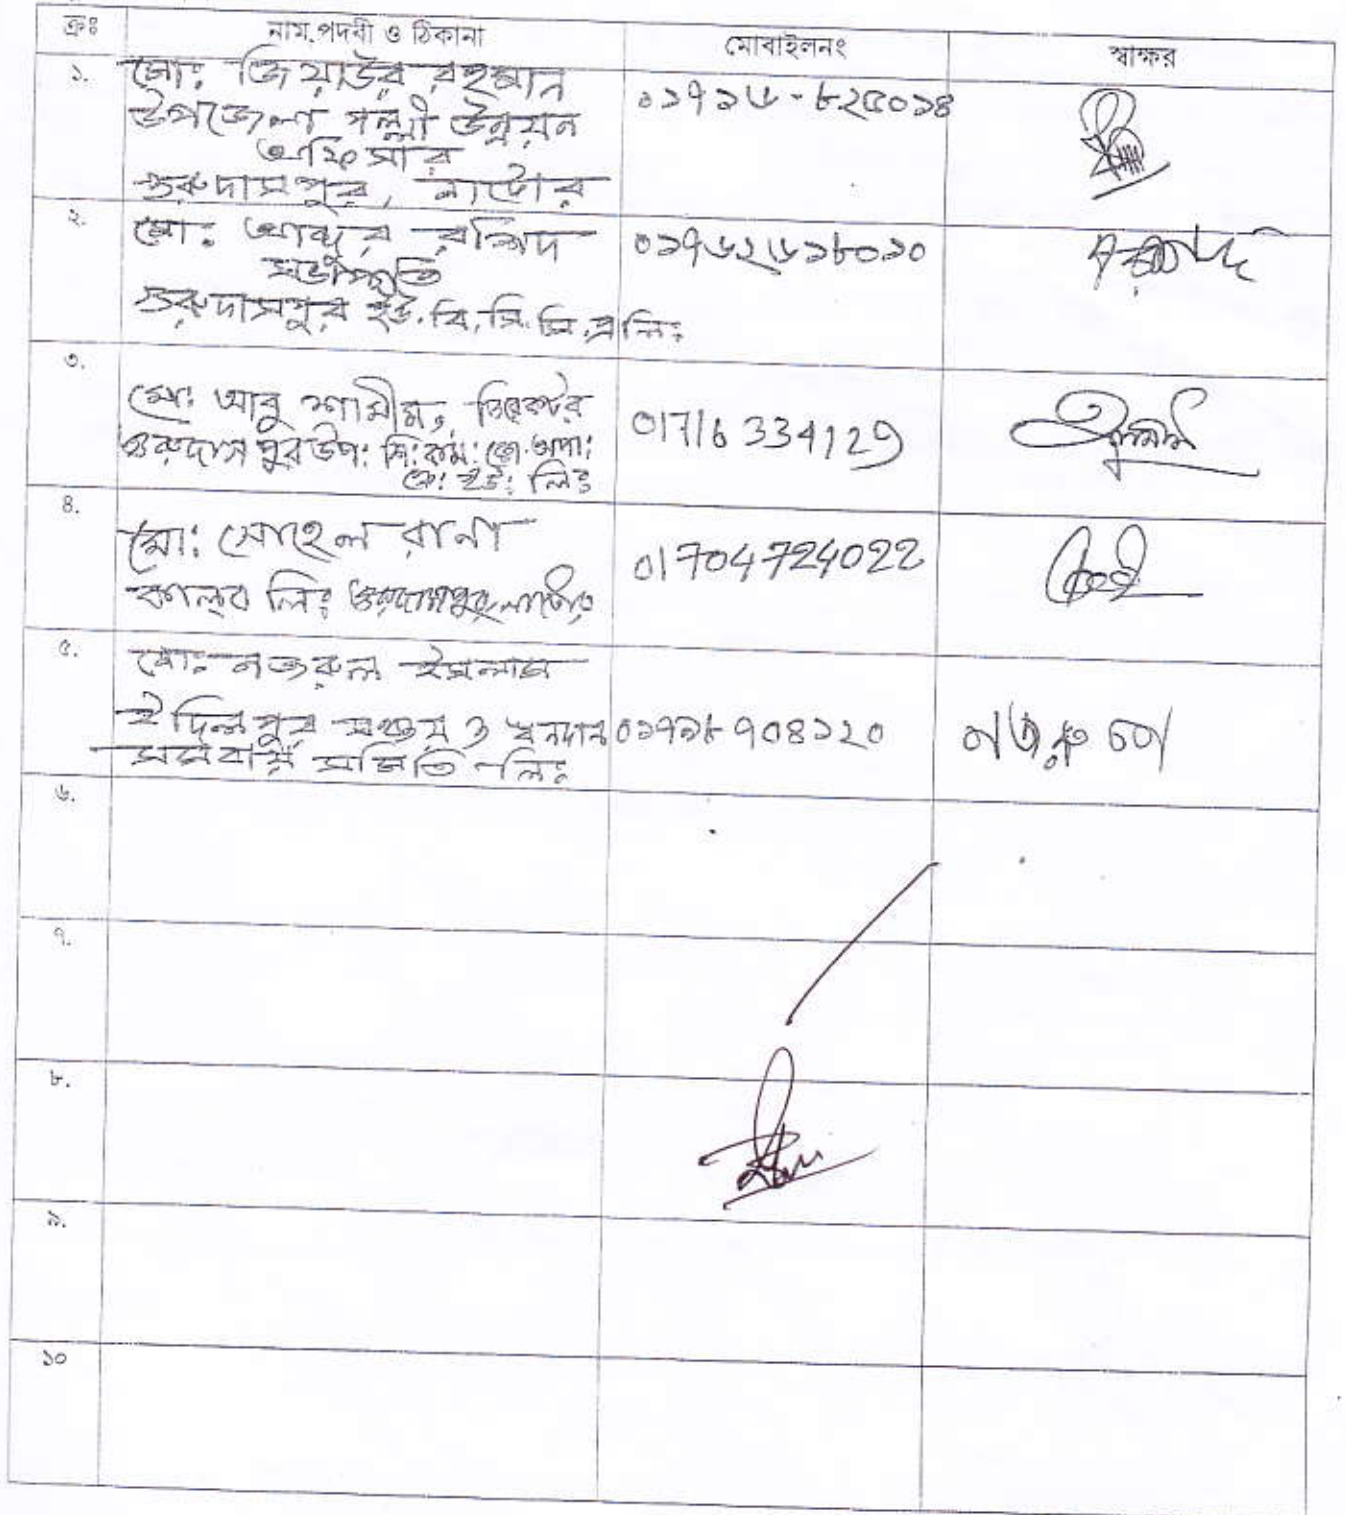 ক্রঃ নাম,পদবী ও ঠিকানা মোবাইলনং স্বাক্ষর
১. মো: জিয়াউর রহমান
উপজেলা পল্লী উন্নয়ন
অফিসার
গুরুদাসপুর, নাটোর
০১৭১৬-৮২৫০১৪
২. মো: আব্দুর রশিদ
সভাপতি
গুরুদাসপুর ইউ.বি.সি.সি.এ লি:
০১৭৬২৬১৮০১০
৩. মো: আবু শামীম, ডিরেক্টর
গুরুদাসপুর উপ: শি: কর্ম:
ইউ: লিঃ
01716 334129
৪. মো: সোহেল রানা
কাল্ব লিঃ গুরুদাসপুর, নাটোর
01704724022
৫. মো: নজরুল ইসলাম
ইদিলপুর সঞ্চয় ও ঋনদান
সমবায় সমিতি লিঃ
০১৭১৮ ৭০৪১২০
নজরুল
৬.
৭.
৮.
৯.
১০